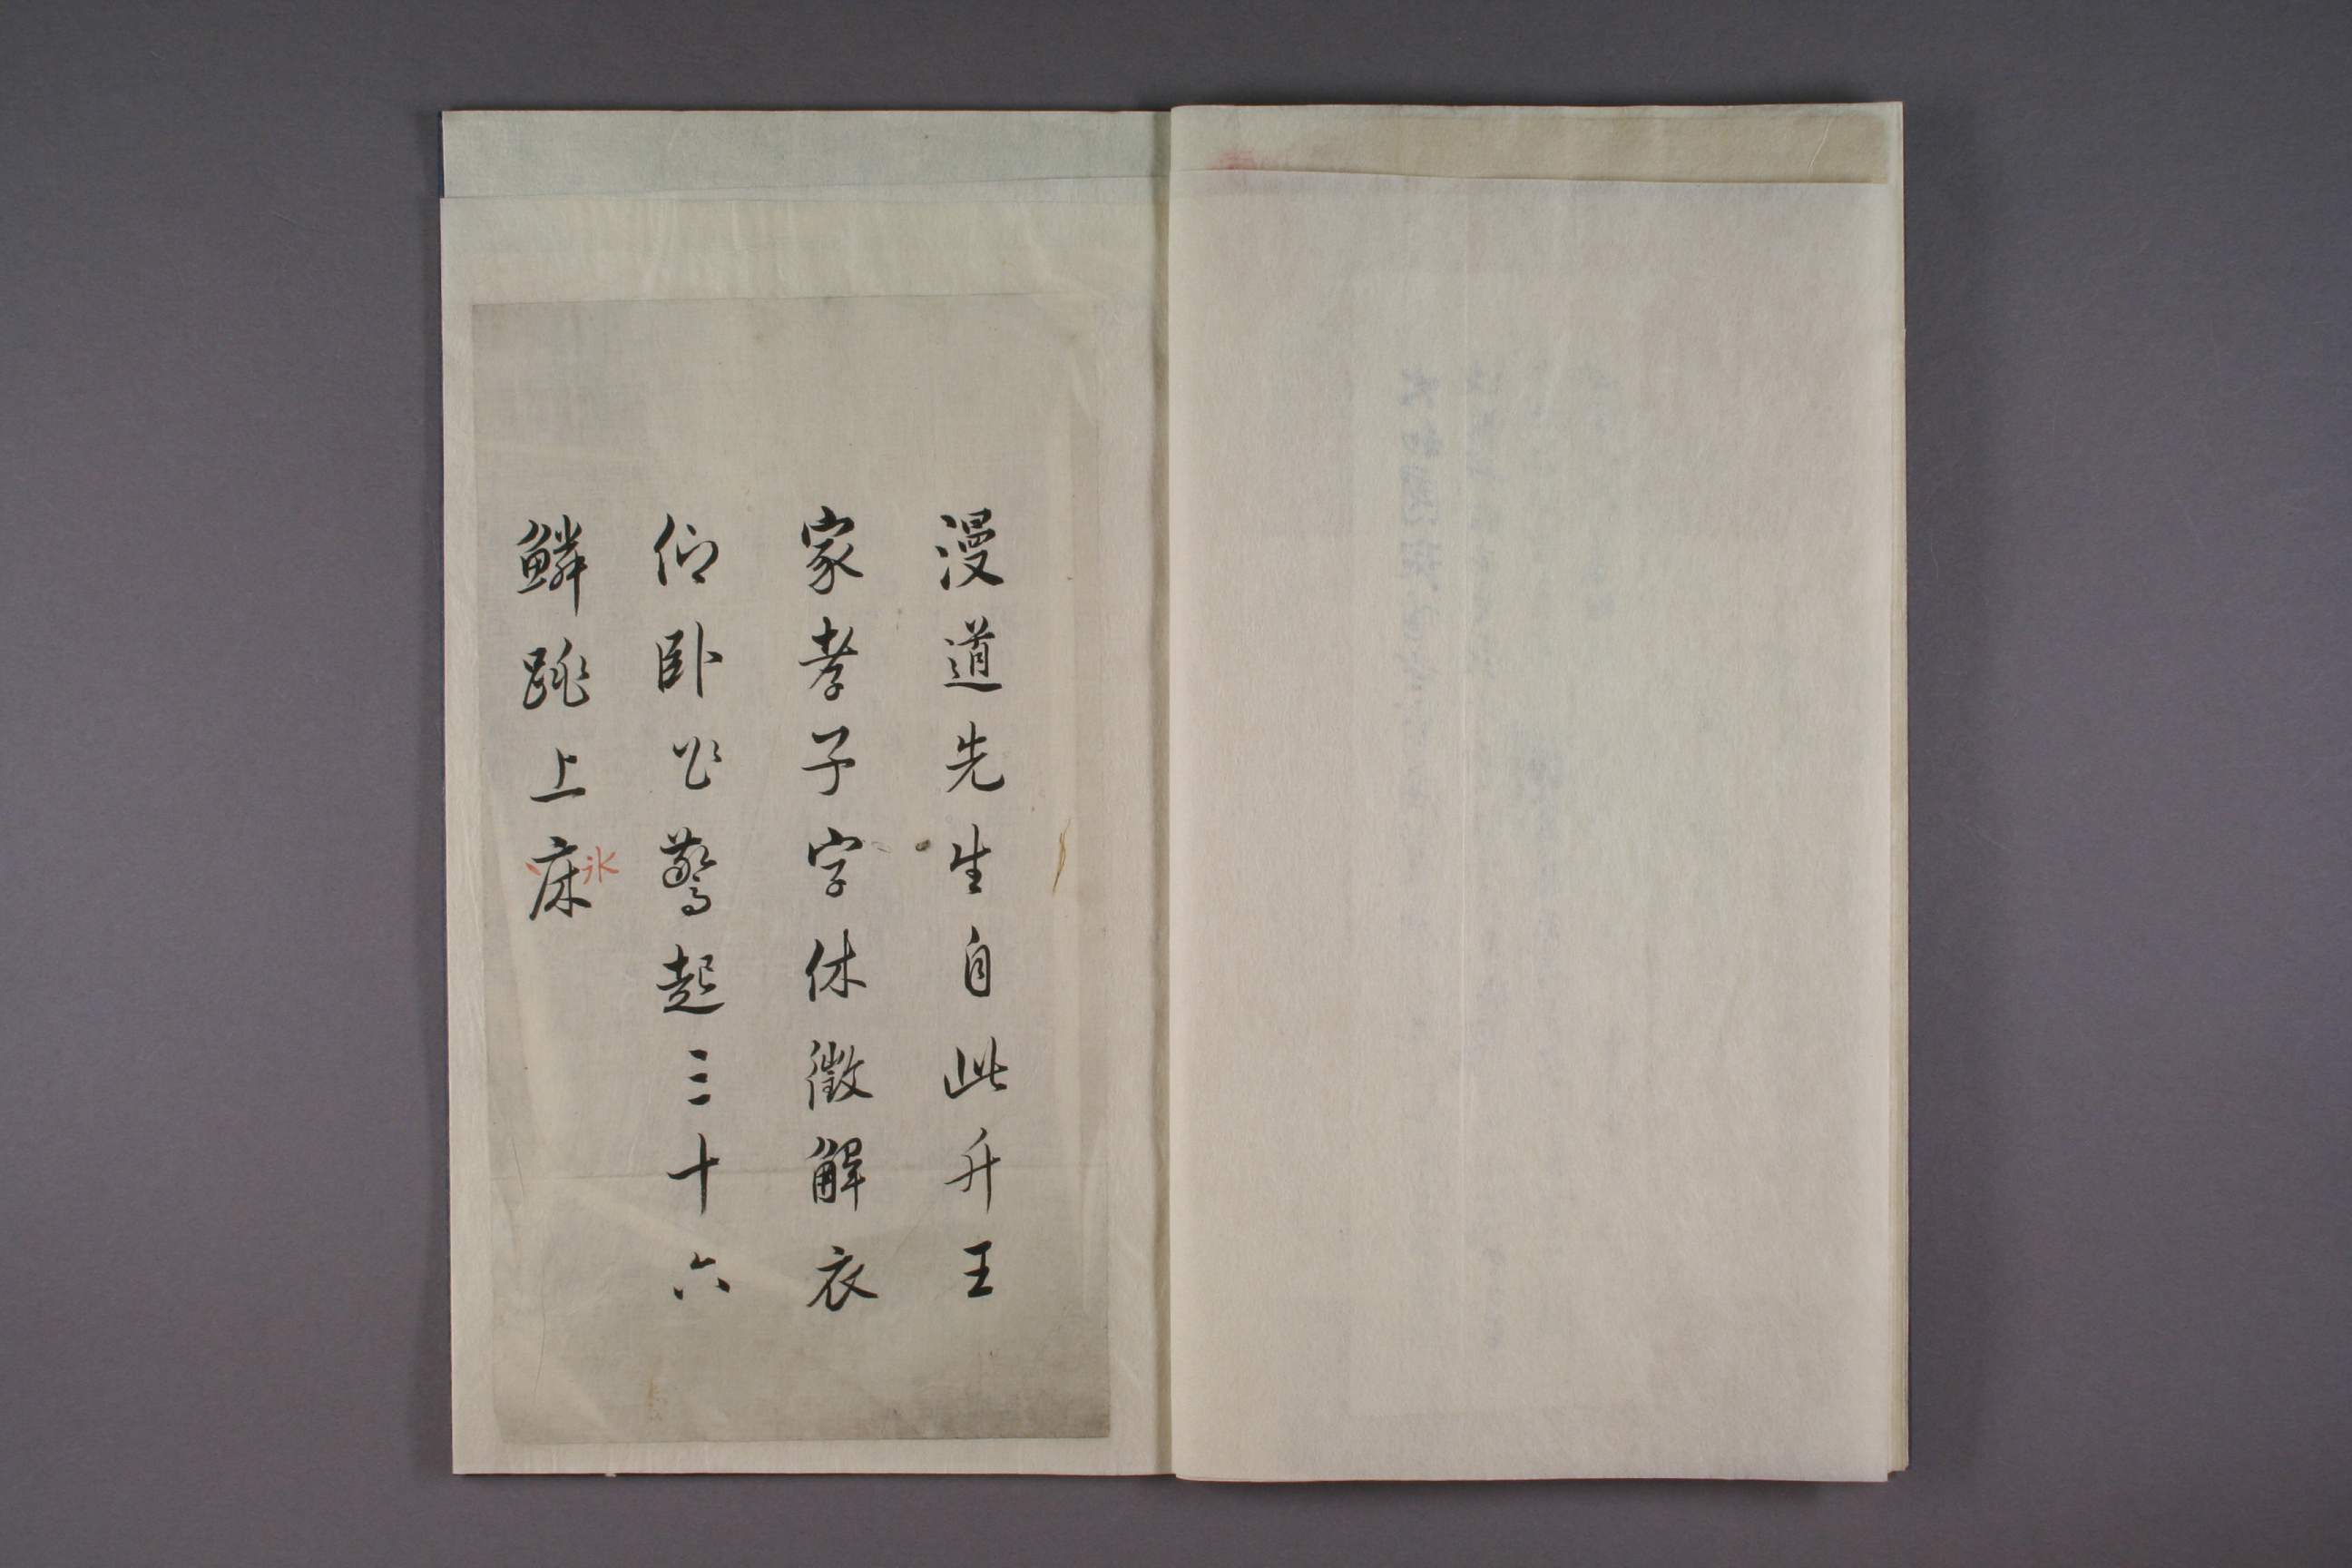 漫道先生自此升王
家孝子字休徵解衣
仰卧冰驚起三十六
鱗跳上床
氷